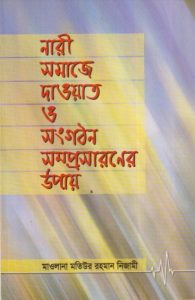 নারী
সমাজে
দাওয়াত
ও
সংগঠন
সম্প্রসারনের
উপায়
মাওলানা মতিউর রহমান নিজামী